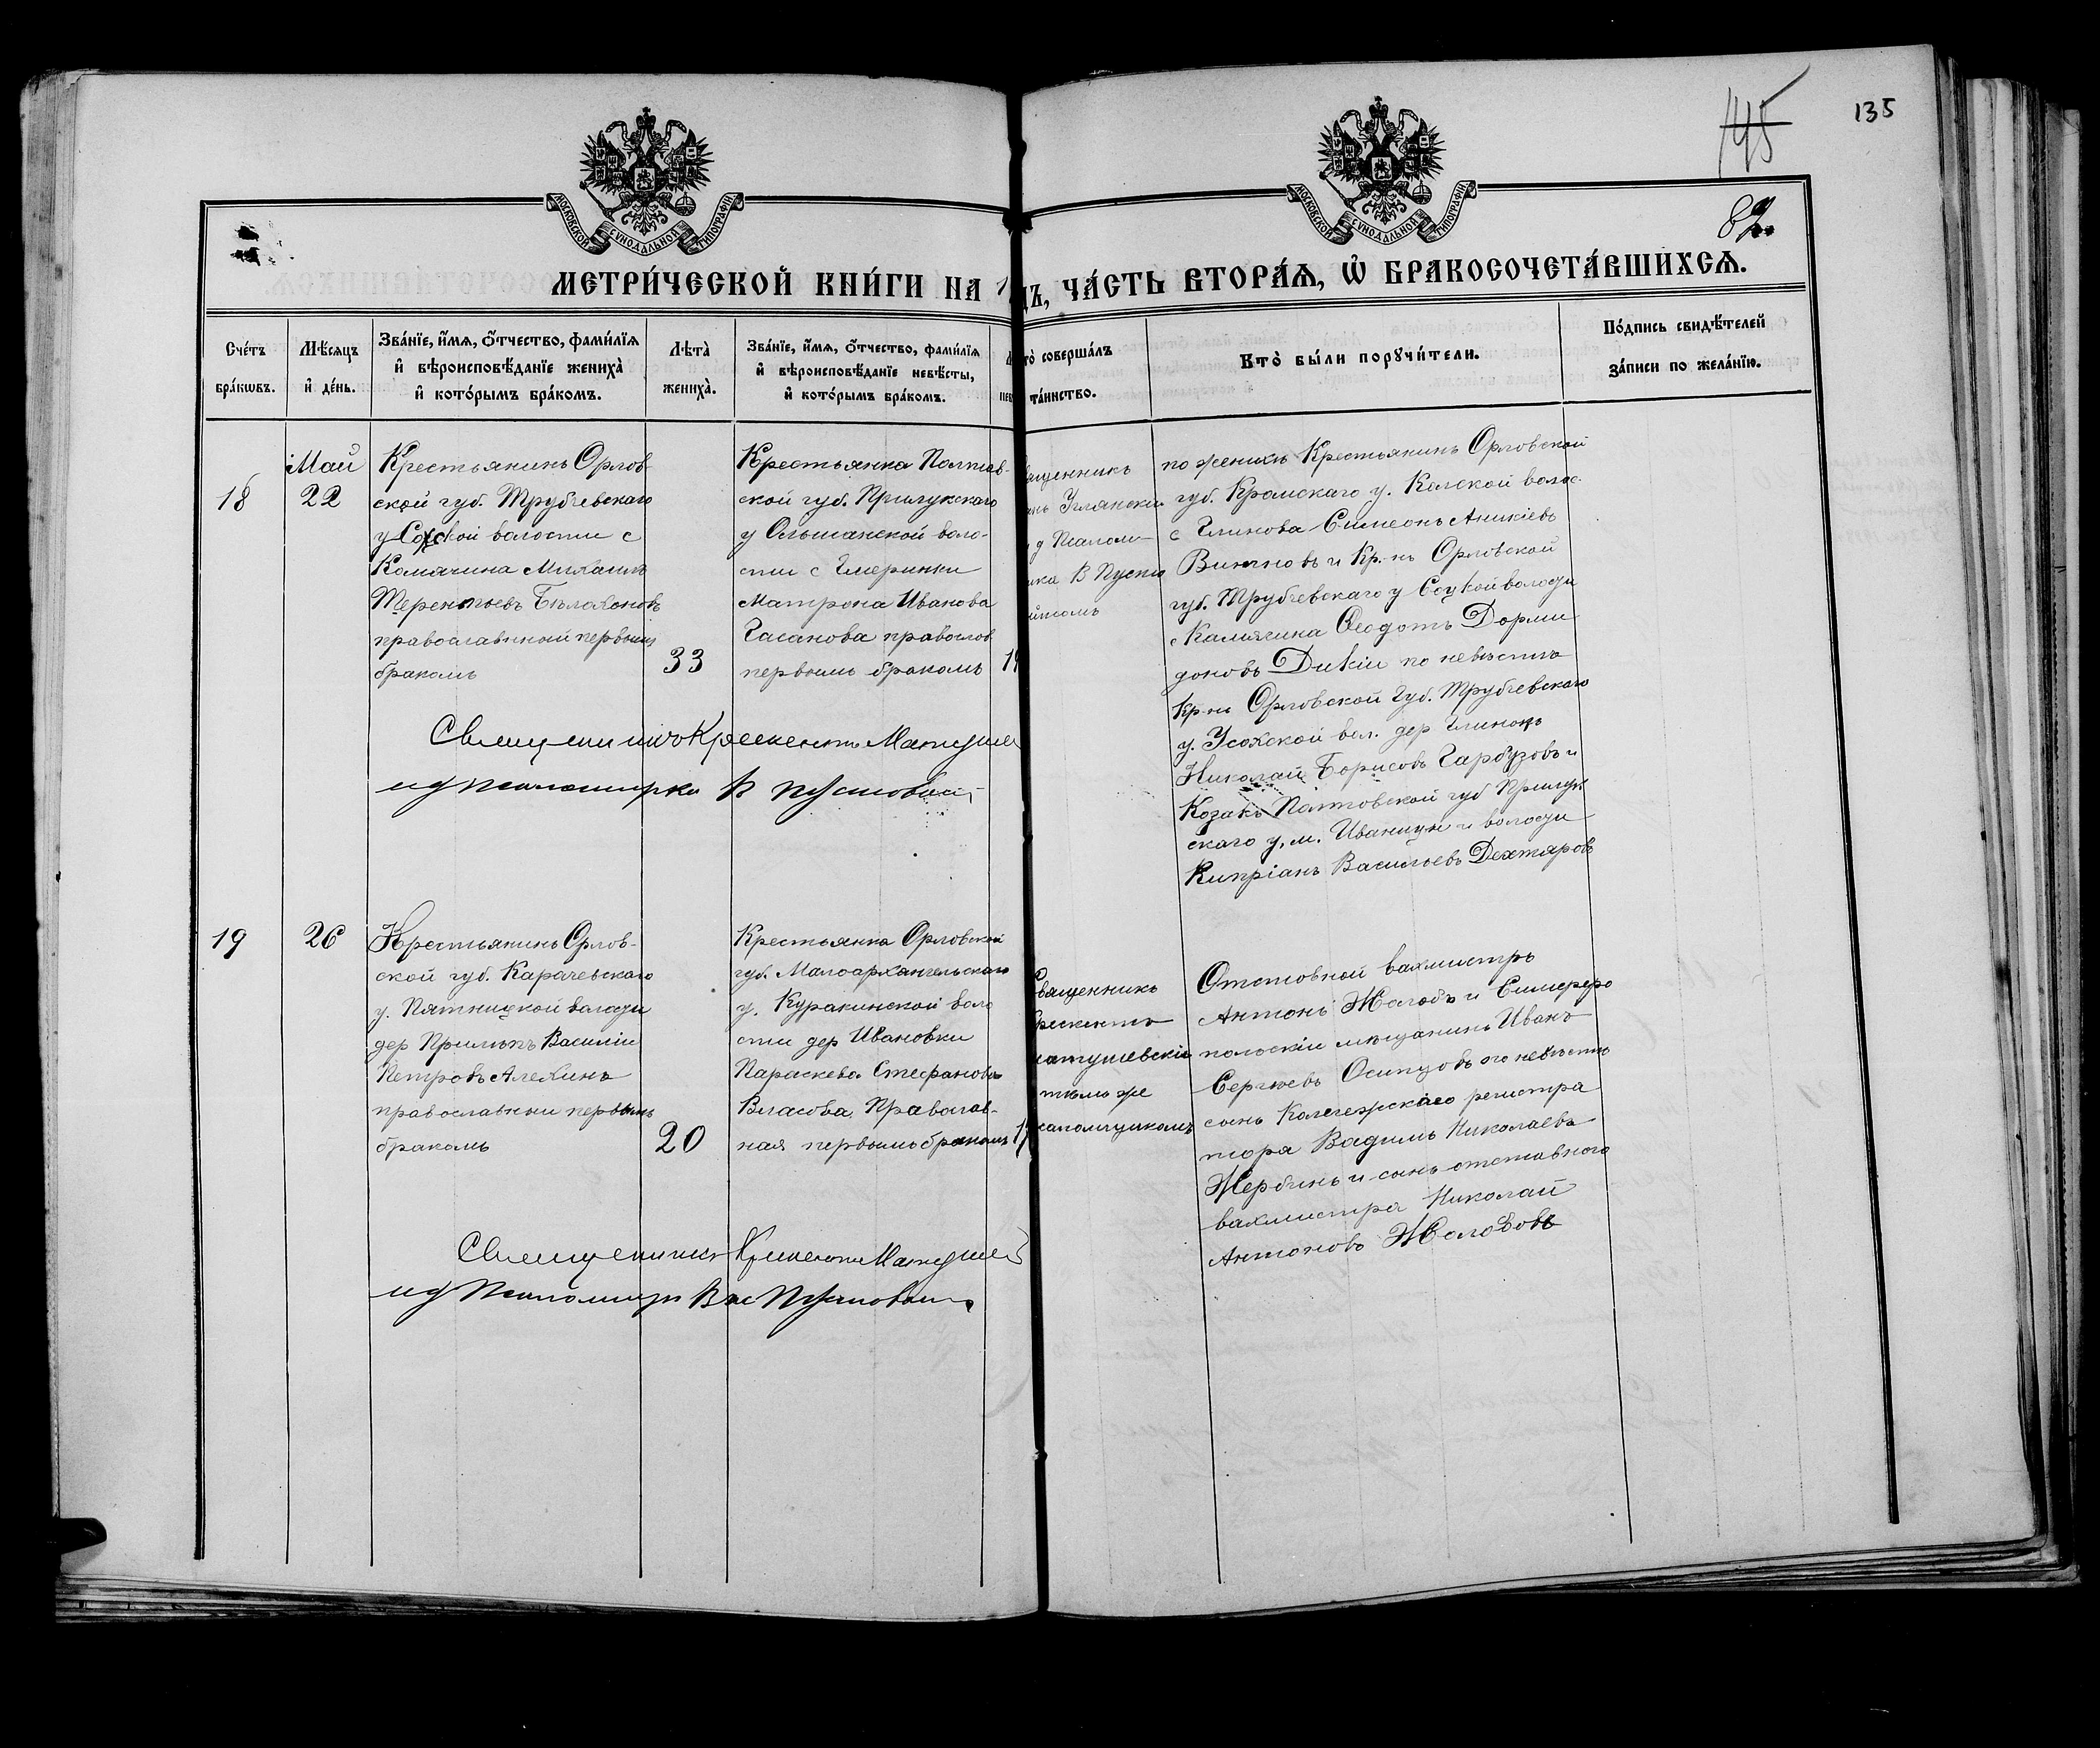 145
135
82
МОСКОВСКОЙ СУНОДАЛЬНОЙ ТИПОГРАФІИ
МОСКОВСКОЙ СУНОДАЛЬНОЙ ТИПОГРАФІИ
МЕТРИ́ЧЕСКОЙ КНИ́ГИ НА 1
ДЪ, ЧА́СТЬ ВТОРА́Ѧ, Ѡ҆ БРАКОСОЧЕТА́ВШИХСѦ.
Сче́тъ бра́кѡвъ.
Мѣ́сѧцъ и҆ де́нь.
Зва́нїе, и҆́мѧ, ѻ҆́тчество, фами́лїѧ и҆ вѣроисповѣ́данїе жениха̀ и҆ кото́рымъ бра́комъ.
Лѣ́та̀ жениха̀.
Зва́нїе, и҆́мѧ, ѻ҆́тчество, фами́лїѧ и҆ вѣроисповѣ́данїе невѣ́сты, и҆ кото́рымъ бра́комъ.
то̀ соверша́лъ та́инство.
Кто̀ бы́ли порꙋчи́тели.
По́дпись свидѣ́телей за́писи по жела́нїю.
18
Май
22
Крестьянинъ Орлов-
ской губ. Трубчевскаго
у волости с
Комягина Михаилъ
Терентьевъ Бѣлохоновъ
православный первымъ
бракомъ
33
Крестьянка Полтав-
ской губ. Прилукскаго
у Ольшанской воло-
сти с
Матрона Иванова
Гасанова православ
первымъ бракомъ
ященникъ
анъ Углянскій
д Псалом-
ика В Пусто
по женихѣ Крестьянинъ Орловской
губ. Кромскаго у. волос.
с Глинова Симеонъ Аникіевъ
и Кр-нъ Орловской
губ. Трубчевскаго у волости
с Комягина Ѳеодотъ Дорми
доновъ Дикій по невѣстѣ
Кр-нъ Орловской Губ. Трубчевскаго
у. Усохской вол. дер
Николай Борисовъ Гарбузовъ и
Козакъ Полтовской губ Прилук
скаго у, м. Иваницы и волости
Кипріанъ Васильевъ Дехтяровъ
Священникъ Крескентъ Матушев
ид Псаломщика В Пустовой
19
26
Крестьянинъ Орлов-
ской губ. Карачевскаго
у. Пятницкой волости
дер Василій
Петровъ Алехинъ
православный первымъ
бракомъ
20
Крестьянка Орловской
губ. Малоархангельскаго
у. Куракинской воло
сти дер Ивановки
Параскева Стефанова
Власова, Православ-
ная первымъ бракомъ
вященникъ
рескентъ
атушевскій
тѣмъ же
саломщикомъ
Отставной вахмистръ
Антонъ Жолобъ и Симферо
польскій мѣщанинъ Иванъ
Сергѣевъ Осипцовъ невѣстѣ
сынъ Коллежскаго регистра
тора Вадимъ Николаевъ
Жербинъ и сынъ отставного
вахмистра Николай
Антоновъ Жолобовъ
Священникъ Крескентъ Матушев
ид Псаломщика Вас Пустовой